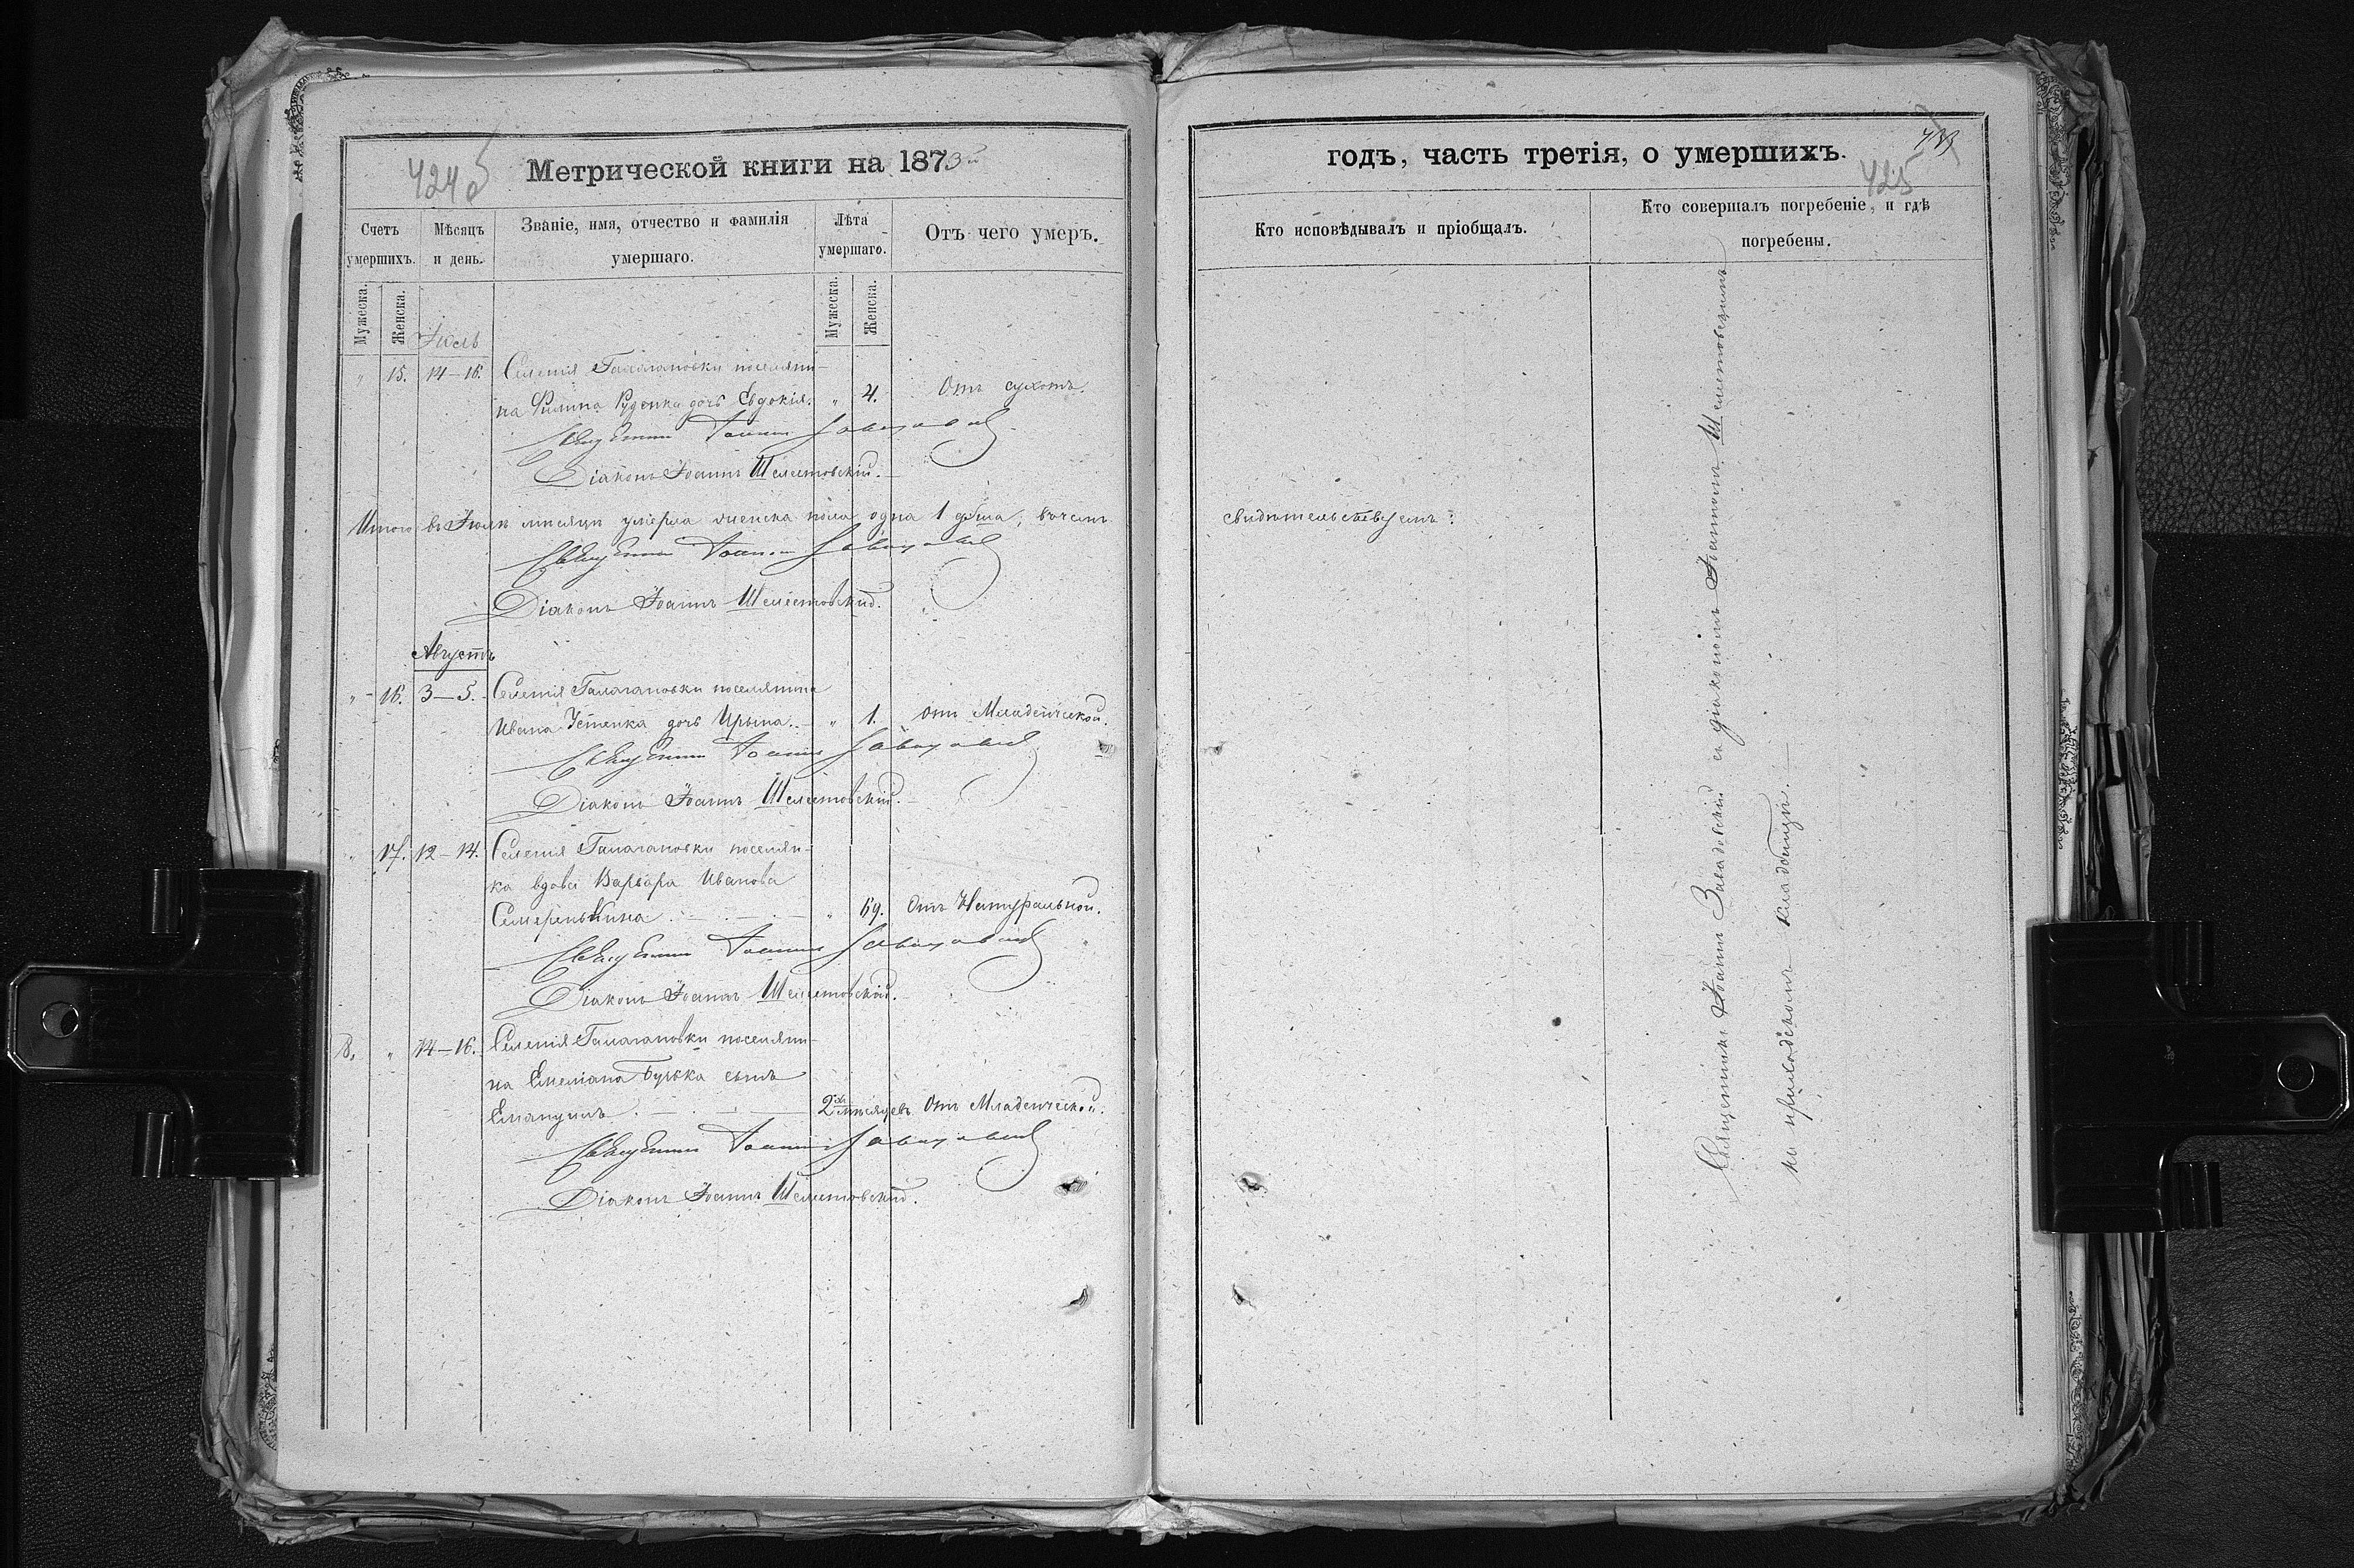 424 об
Метрической книги на 1873й
Счетъ умершихъ.
Мѣсяцъ и день.
Званіе, имя, отчество и фамилія умершаго.
Лѣта умершаго.
Отъ чего умеръ.
Мужеска.
Женска.
Мужеска.
Женска.
Іюль
" 15. 14–16. Селенія Галагановки поселяни-
на Филипа Руденка дочь Евдокія. " 4. Отъ сухотъ.
Священникъ Іоаннъ Завадовскій
Діаконъ Іоаннъ Шелестовскій.
Итого въ Іюлѣ мѣсяцѣ умерла женска пола одна 1 душа, въ чемъ
Священникъ Іоаннъ Завадовскій
Діаконъ Іоаннъ Шелестовскій.
Августъ
" 16. 3–5. Селенія Галагановки поселянина
Ивана Устенка дочь Ирына. " 1. отъ Младенческой.
Священникъ Іоаннъ Завадовскій
Діаконъ Іоаннъ Шелестовскій.
" 17. 12–14. Селенія Галагановки поселян-
ка вдова Варвара Иванова
Семеренькина " 69. Отъ Натуральной.
Священникъ Іоаннъ Завадовскій
Діаконъ Іоаннъ Шелестовскій.
8. " 14–16. Селенія Галагановки поселяни-
на Емеліана Бушка сынъ
Емануилъ 2хъ мѣсяцевъ Отъ Младенческой.
Священникъ Іоаннъ Завадовскій
Діаконъ Іоаннъ Шелестовскій.
годъ, часть третія, о умершихъ.
425
Кто исповѣдывалъ и пріобщалъ.
Кто совершалъ погребеніе, и гдѣ погребены.
свидѣтельствуемъ:
Священникъ Іоаннъ Завадовскій съ діакономъ Іоанномъ Шелестовскимъ
на приходскомъ кладбищѣ.